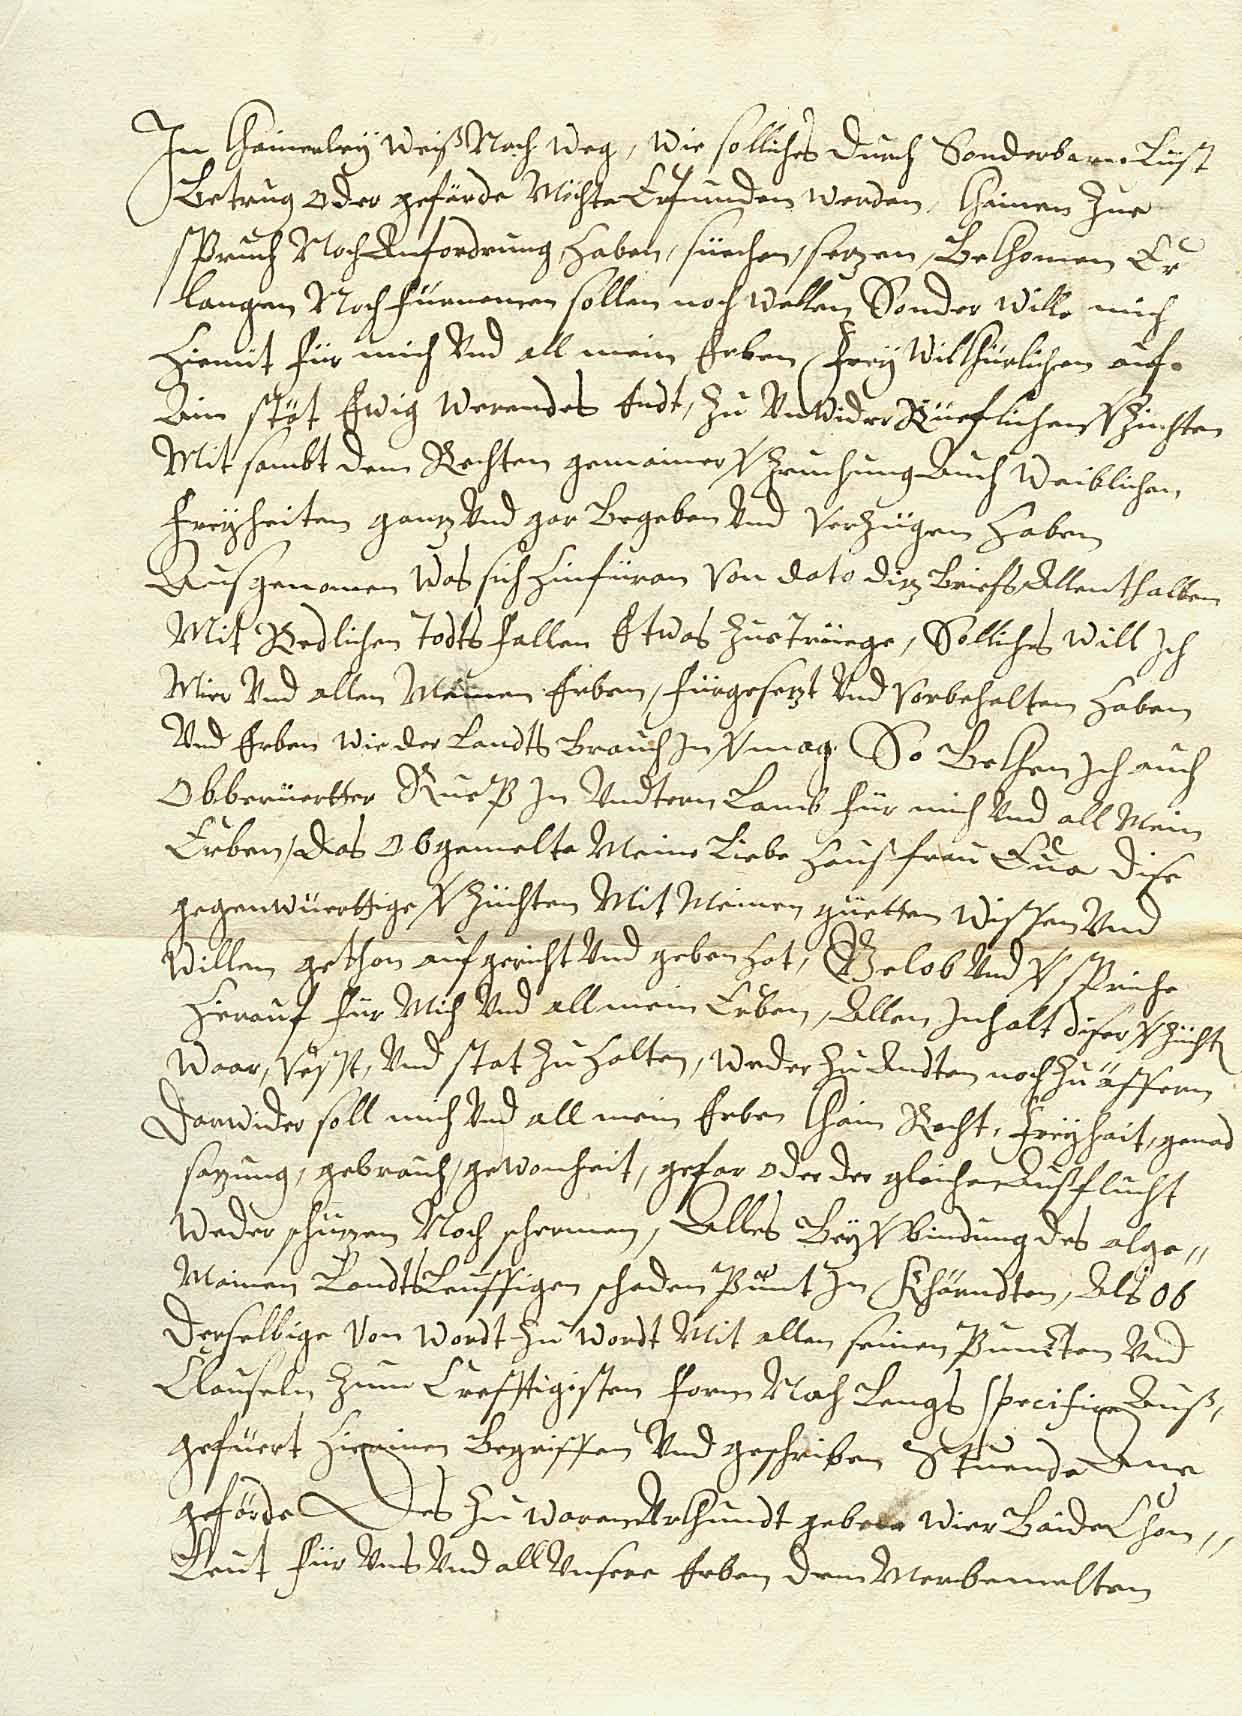 In khainerleÿ weiß Noch weg, wie solliches durch Sonderbare List
Betrug oder gefärde Möchte Erfunden werden, khainen Zue
spruch Noch Anfordrung haben, suechen, sezen, Bekhomen Er
langen Noch fürnemen sollen noch wellen Sonder wille mich
hiemit für mich Vnd all mein Erben, freÿ wilkhürlichen auf
Ain stät Ewig werendes Endt, zu Vnwider Rüeflichen Vzichten
Mit sambt dem Rechten gemainer Vzeichung Auch weiblichen
freÿheiten ganz Vnd gar Begeben Vnd Verzügen haben
Ausgenomen was sich hinfüran Von dato diz Briefs Allenthalben
Mit Redlichen todts fallen Etwas zuetrüege, Solliches will Ich
Mier Vnd allen Meinen Erben, fürgesezt Vnd Vorbehalten haben
Vnd Erben wie der Landts Brauch In Vmag. So Bekhen Ich auch
Obberüertter Rueß In Vndtern Lamb für mich Vnd all Mein
Erben, Das Obgemelte Meine Liebe Hausfrau Eua dise
gegenwüerttige Vzüchten Mit Meinen güetten wissen Vnd
willen gethon aufgericht Vnd geben hat, Gelob Vnd Vspriche
hierauf für Mich Vnd all mein Erben, Allen Inhalt diser Vzücht
waar, Vesst, Vnd stat zu halten, weder zu Andten noch zu äffern
Darwider soll mich Vnd all mein Erben khain Recht, freÿhait, genad
sazung, gebrauch, gewonheit, gefar oder der gleichen Ausflucht
weder schüzen Noch schermen, Alles Beÿ Vbindung des alge„
Mainen Landts Leuffigen schaden Punt In Khärndten, Als ob
derselbige von wordt zu wordt Mit allen seinen Puncten Vnd
Clauseln zum Crefftigisten form Nach Lengs specificie Auß,
gefüert hierinen Begriffen Vnd geschriben Stuende Ane
geförde Des zu waren Vrkhundt geben wier Baide Chon„
Leut für Vns Vnd all Vnsere Erben dem Merbemelten